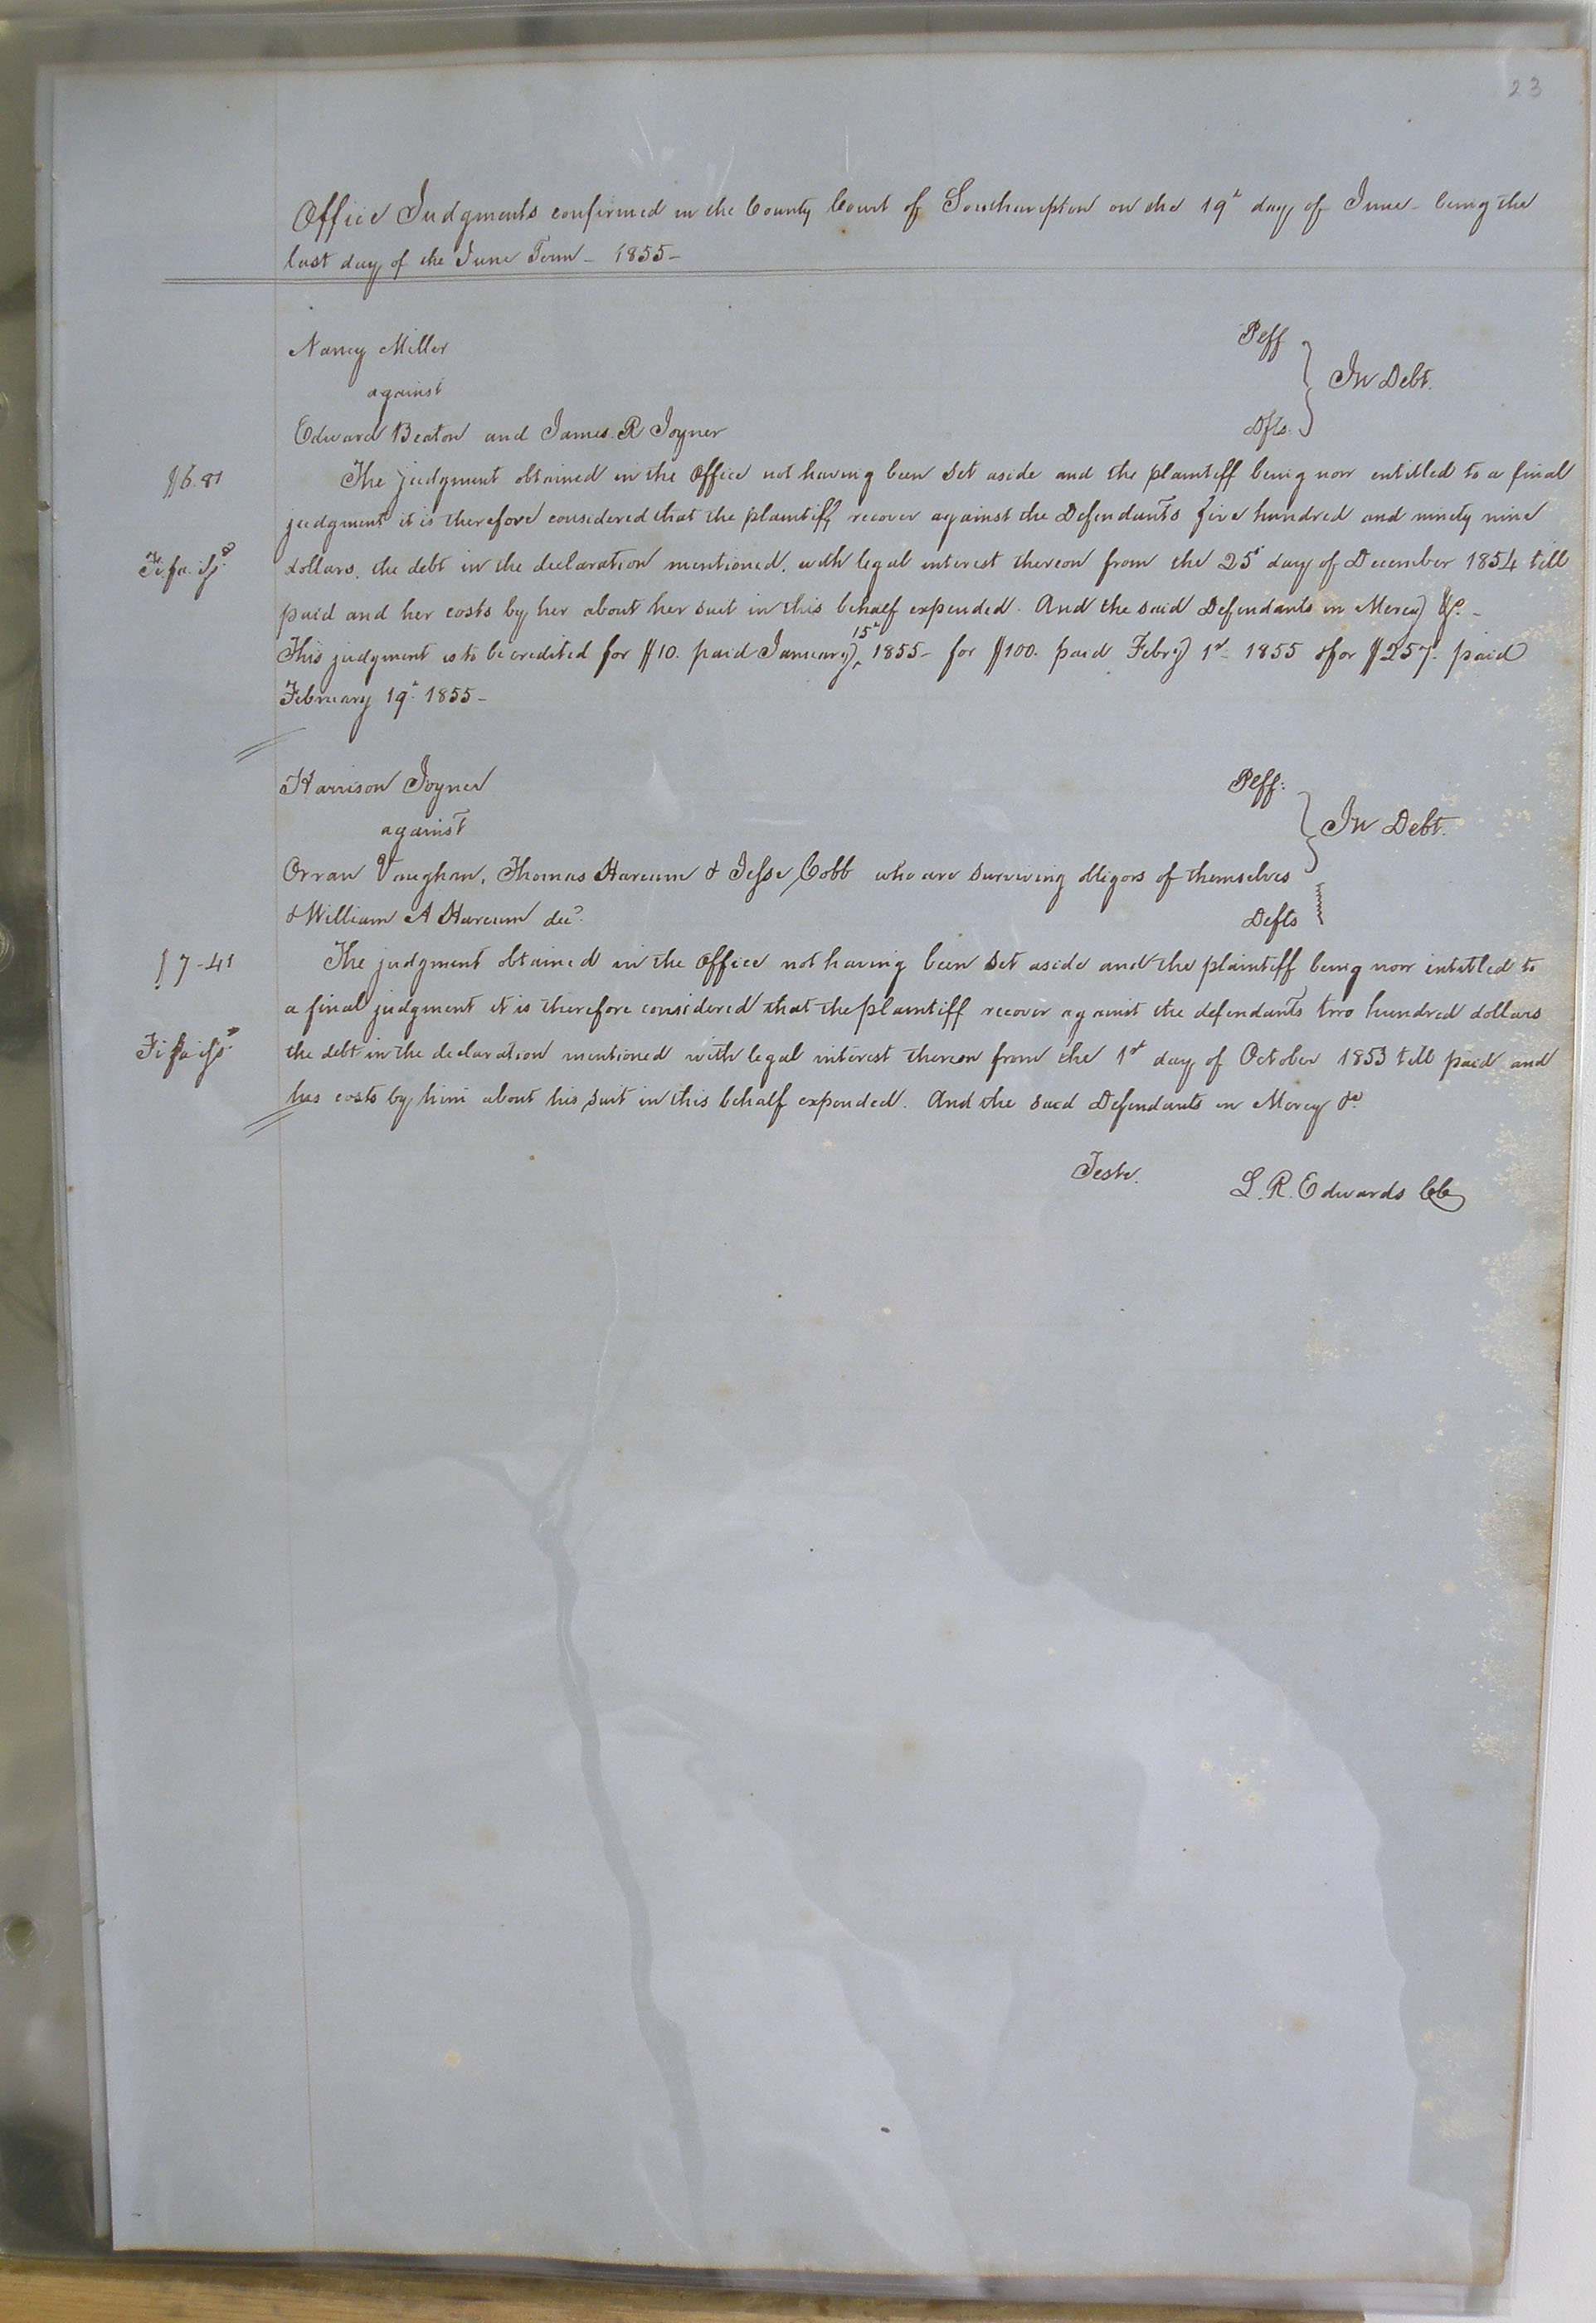 23
Office Judgments confirmed in the County Court of Southampton on the 19th day of June - being the
last day of the June Term - 1855 -
Nancy Miller Plff
against In Debt.
Edward Beaton and James R Joyner Dfts.
$6.81 The judgment obtained in the Office not having been set aside and the plaintiff being now entitled to a final
judgment it is therefore considered that the plaintiff recover against the Defendants five hundred and ninety nine
Fi. fa. isd dollars, the debt in the declaration mentioned, with legal interest thereon from the 25th day of December 1854 till
paid and her costs by her about her suit in this behalf expended. And the said Defendants in Mercy &c. -
This judgment is to be credited for $10. paid January 15th 1855 - for $100. paid Febry 1st - 1855 & for $257. paid
February 19th 1855 -
Harrison Joyner Plff:
against In Debt.
Orran Vaughan, Thomas Harcum & Jesse Cobb who are surviving obligors of themselves
& William A Harcum decd. Defts
$7-41 The judgment obtained in the Office not having been set aside and the plaintiff being now intitled to
a final judgment it is therefore considered that the plaintiff recover against the defendants two hundred dollars
Fi fa isd the debt in the declaration mentioned with legal interest thereon from the 1st day of October 1853 till paid and
his costs by him about his suit in this behalf expended. And the said Defendants in Mercy &c.
Teste. L. R. Edwards CC